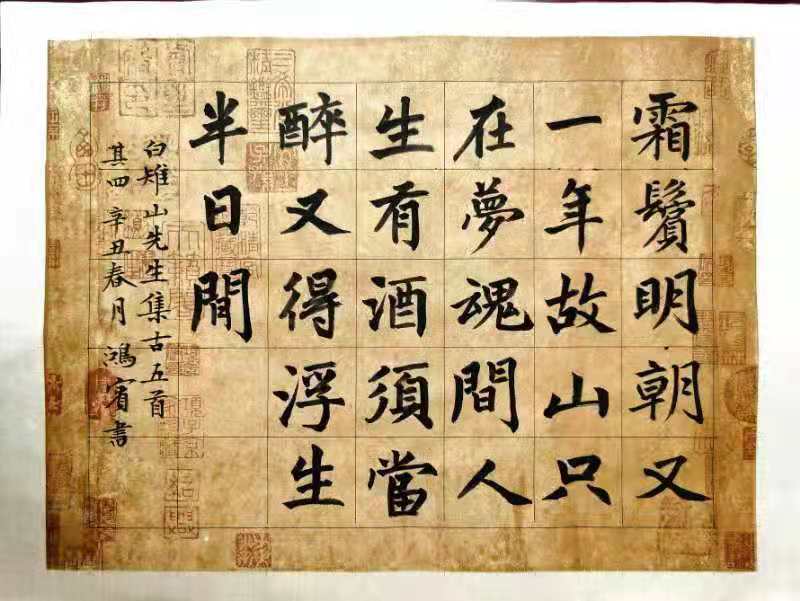 霜鬢明朝又
一年故山只
在夢魂間人
生有酒須當
醉又得浮生
半日閒
白雉山先生集古五首
其四辛丑春月鴻賓書